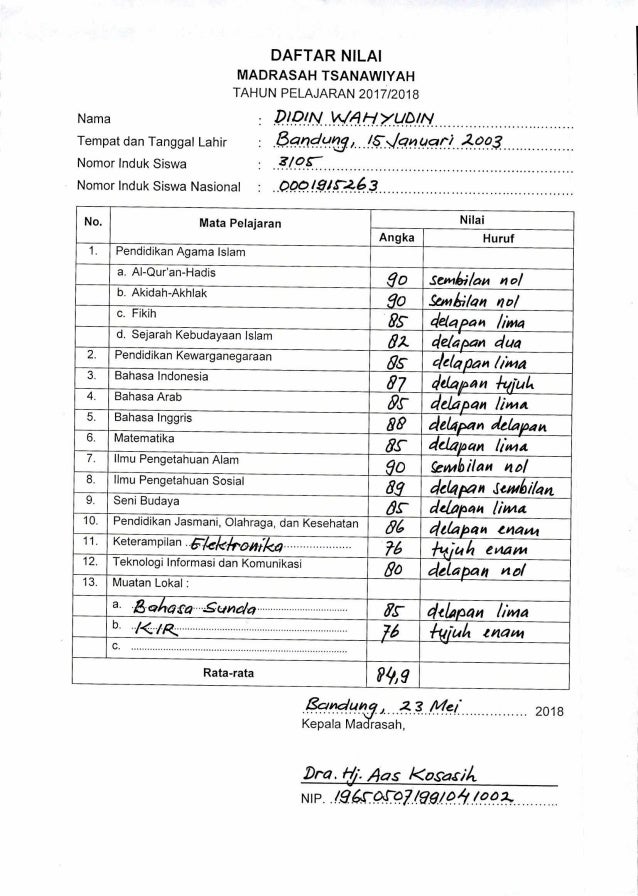 DAFTAR NILAI
MADRASAH TSANAWIYAH
TAHUN PELAJARAN 2017/2018
Nama : DIDIN WAHYUDIN
Tempat dan Tanggal Lahir : Bandung, 15 Januari 2003
Nomor Induk Siswa : 3105
Nomor Induk Siswa Nasional : 0001915263
No. Mata Pelajaran Nilai
Angka Huruf
1. Pendidikan Agama Islam
a. Al-Qur'an-Hadis 90 sembilan nol
b. Akidah-Akhlak 90 sembilan nol
c. Fikih 85 delapan lima
d. Sejarah Kebudayaan Islam 82 delapan dua
2. Pendidikan Kewarganegaraan 85 delapan lima
3. Bahasa Indonesia 87 delapan tujuh
4. Bahasa Arab 85 delapan lima
5. Bahasa Inggris 88 delapan delapan
6. Matematika 85 delapan lima
7. Ilmu Pengetahuan Alam 90 sembilan nol
8. Ilmu Pengetahuan Sosial 89 delapan sembilan
9. Seni Budaya 85 delapan lima
10. Pendidikan Jasmani, Olahraga, dan Kesehatan 86 delapan enam
11. Keterampilan Elektronika 76 tujuh enam
12. Teknologi Informasi dan Komunikasi 80 delapan nol
13. Muatan Lokal :
a. Bahasa Sunda 85 delapan lima
b. KIR 76 tujuh enam
c.
Rata-rata 84,9
Bandung, 23 Mei 2018
Kepala Madrasah,
Dra. Hj. Aas Kosasih
NIP. 196505071991041002